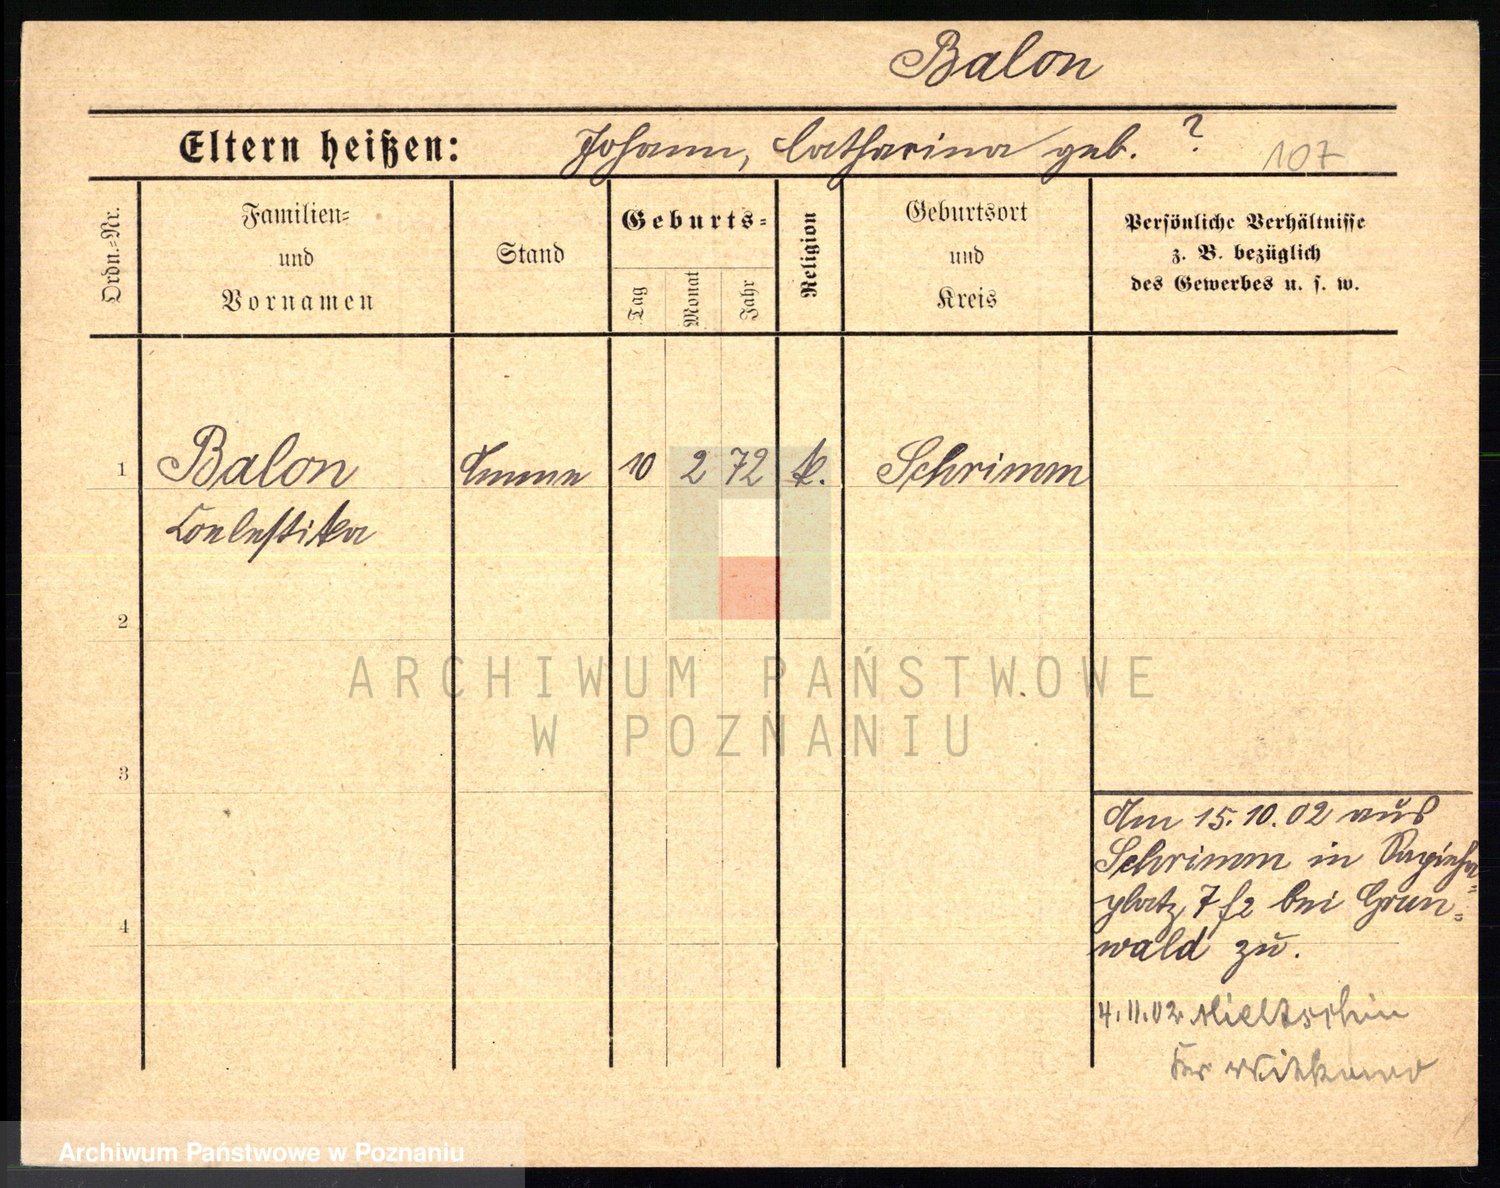 Balon
Eltern heißen: Johann, Catharina geb. ?
107
Ordn.-Nr.
Familien-
und
Vornamen
Stand
Geburts-
Tag
Monat
Jahr
Religion
Geburtsort
und
Kreis
Persönliche Verhältnisse
z. B. bezüglich
des Gewerbes u. s. w.
1 Balon Amme 10 2 72 k. Schrimm
Coelestika
2
ARCHIWUM PAŃSTWOWE
W POZNANIU
3
Am 15.10.02 aus
Schrimm in Sapieha-
platz 7 f2 bei Grun-
4
wald zu.
4.11.02 Mieltschin
Kr Witkowo
Archiwum Państwowe w Poznaniu